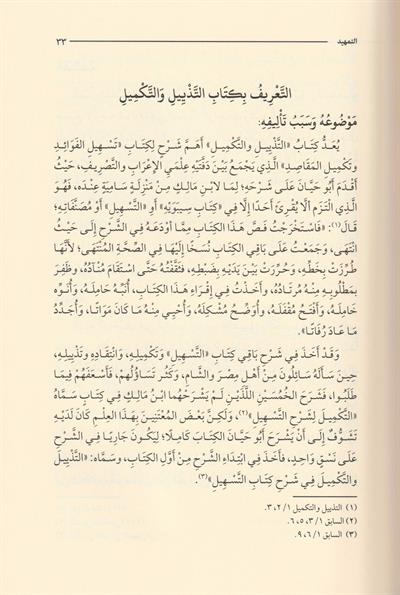 التمهيد ٣٣
التَّعْرِيفُ بِكِتَابِ التَّذْيِيلِ وَالتَّكْمِيلِ
مَوْضُوعُهُ وَسَبَبُ تَأْلِيفِهِ:
يُعَدُّ كِتَابُ «التَّذْيِيلِ وَالتَّكْمِيلِ» أَهَمَّ شَرْحٍ لِكِتَابِ «تَسْهِيلِ الفَوَائِدِ
وَتَكْمِيلِ المَقَاصِدِ» الَّذِي يَجْمَعُ بَيْنَ دَفَّتَيْهِ عِلْمَيِ الإِعْرَابِ وَالتَّصْرِيفِ، حَيْثُ
أَقْدَمَ أَبُو حَيَّانَ عَلَى شَرْحِهِ؛ لِمَا لابْنِ مَالِكٍ مِنْ مَنْزِلَةٍ سَامِيَةٍ عِنْدَه، فَهُوَ
الَّذِي التَزَمَ أَلَّا يُقْرِئَ أَحَدًا إِلَّا فِي «كِتَابِ سِيبَوَيْهِ» أَو «التَّسْهِيلِ» أَوْ مُصَنَّفَاتِهِ؛
قَالَ(١): «فَاسْتَخْرَجْتُ فَصَّ هَذَا الكِتَابِ مِمَّا أَوْدَعَهُ فِي الشَّرْحِ إِلَى حَيْثُ
انْتَهَى، وَجَمَعْتُ عَلَى بَاقِي الكِتَابِ نُسَخًا إِلَيْهَا فِي الصِّحَّةِ المُنْتَهَى؛ لأَنَّهَا
طُرِّزَتْ بِخَطِّهِ، وَحُرِّرَتْ بَيْنَ يَدَيْهِ بِضَبْطِهِ، فَثَقَّفْتُهُ حَتَّى اسْتَقَامَ مُنْآدُهُ، وَظَفِرَ
بِمَطْلُوبِهِ مِنْهُ مُرْتَادُهُ، وَأَخَذْتُ فِي إِقْرَاءِ هَذَا الكِتَابِ، أُنَبِّهُ حَامِلَهُ، وَأُنَوِّهُ
خَامِلَهُ، وَأَفْتَحُ مُقْفَلَهُ، وَأُوَضِّحُ مُشْكِلَهُ، وَأُحْيِي مِنْهُ مَا كَانَ مَوَاتًا، وَأُجَدِّدُ
مَا عَادَ رُفَاتًا».
وَقَدْ أَخَذَ فِي شَرْحِ بَاقِي كِتَابِ «التَّسْهِيلِ» وَتَكْمِيلِهِ، وَانْتِقَادِهِ وَتَذْيِيلِهِ،
حِينَ سَأَلَهُ سَائِلُونَ مِنْ أَهْلِ مِصْرَ وَالشَّامِ، وَكَثُرَ تَسَاؤُلُهُمْ، فَأَسْعَفَهُمْ فِيمَا
طَلَبُوا، فَشَرَحَ الخُمْسَيْنِ اللَّذَيْنِ لَمْ يَشْرَحْهُمَا ابْنُ مَالِكٍ فِي كِتَابٍ سَمَّاهُ
«التَّكْمِيلَ لِشَرْحِ التَّسْهِيلِ»(٢)، وَلَكِنَّ بَعْضَ المُعْتَنِينَ بِهَذَا العِلْمِ كَانَ لَدَيْهِ
تَشَوُّفٌ إِلَى أَنْ يَشْرَحَ أَبُو حَيَّانَ الكِتَابَ كَامِلًا؛ لِيَكُونَ جَارِيًا فِي الشَّرْحِ
عَلَى نَسَقٍ وَاحِدٍ، فَأَخَذَ فِي ابْتِدَاءِ الشَّرْحِ مِنْ أَوَّلِ الكِتَابِ، وَسَمَّاه: «التَّذْيِيلَ
وَالتَّكْمِيلَ فِي شَرْحِ كِتَابِ التَّسْهِيلِ»(٣).
(١) التذييل والتكميل ١/ ٢، ٣.
(٢) السابق ١/ ٣، ٥، ٦.
(٣) السابق ١/ ٦، ٩.